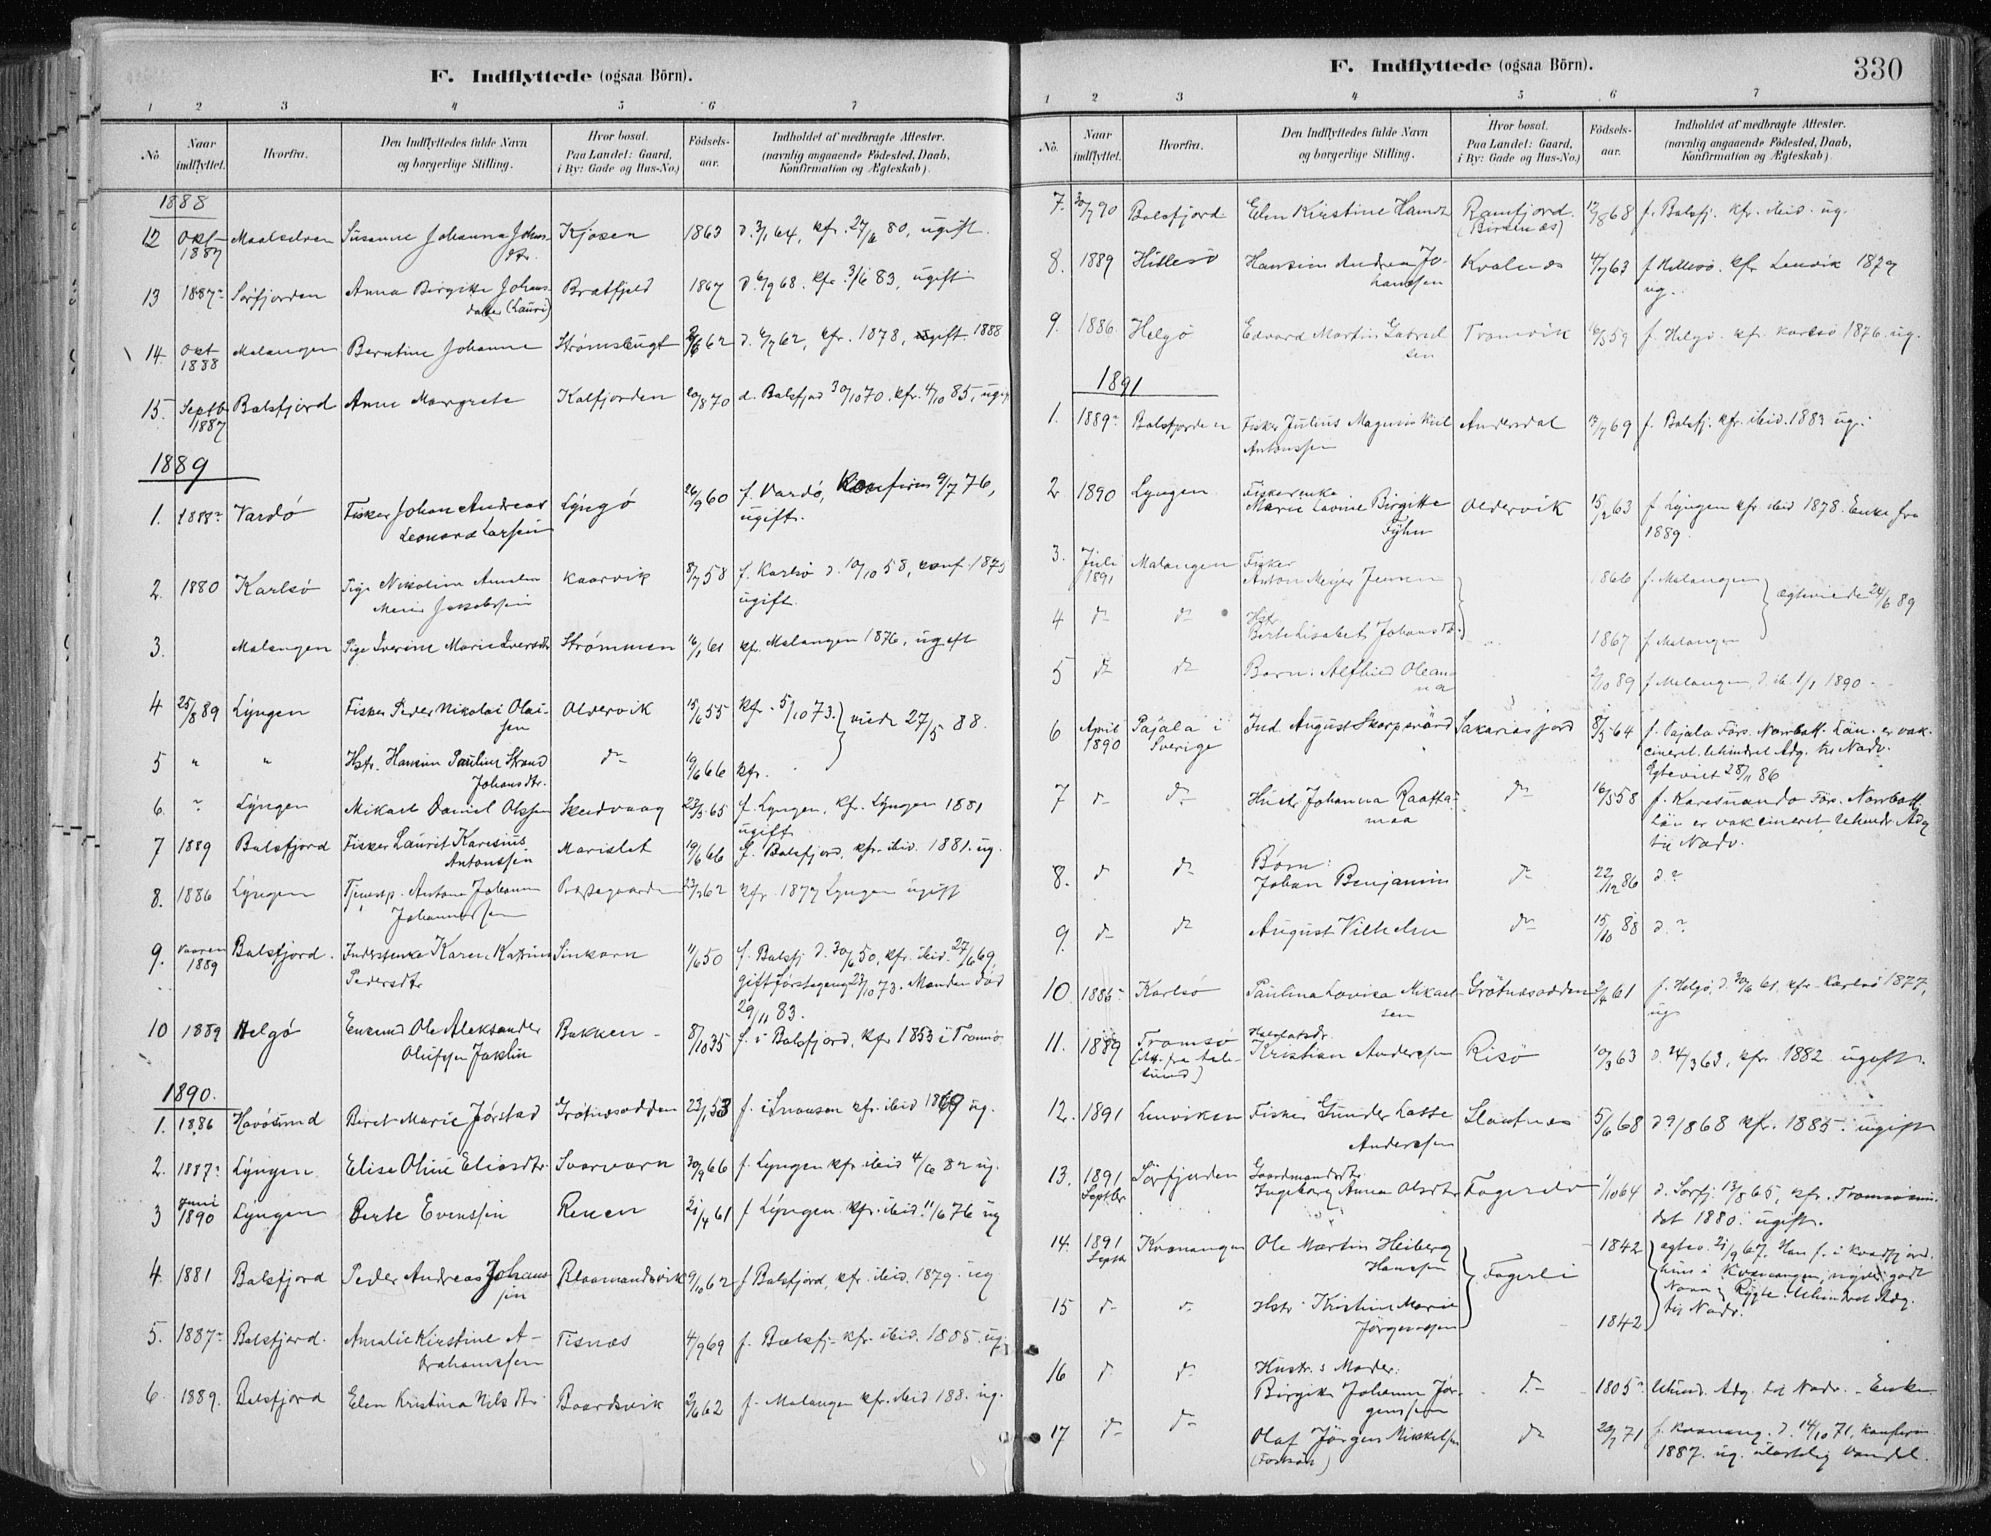 F. Indflyttede (ogsaa Börn).
1 2 3 4 5 6 7
No. Naar indflyttet. Hvorfra. Den Indflyttedes fulde Navn og borgerlige Stilling. Hvor bosat. Paa Landet: Gaard, i By: Gade og Hus-No.) Födsels-aar. Indholdet af medbragte Attester. (navnlig angaaende Födested, Daab, Konfirmation og Ægteskab).
1888
12 Okt 1887 Maalselven Susanne Johanna Johns- Kjosen 1863 d. 3/1 64, kfr. 27/6 80, ugift.
dtr.
13 1887 Sörfjorden Anna Birgitte Johans- Bratfjeld 1867 d. 6/9 68. kfr. 3/6 83, ugift
datter (Lauri)
14. Okt 1888 Malangen Berntine Johanne Strömsbugt 62 d. 6/7 62, kfr. 1878, ugift 1888
15. Septb 1887 Balsfjord Anne Margrete Kalfjorden 20/8 70 d. Balsfjord 30/10 70. kfr. 4/10 85, ugift
1889
1. 1888 Vardö Fisker Johan Andreas Lyngö 26/9 60 f. Vardö, Konfirm 9/7 76,
Leonard Larsen ugift.
2. 1880 Karlsö Pige Nikoline Amalia Kaarvik 8/7 58 f. Karlsö d. 10/10 58, conf. 1875
Marie Jakobsen ugift.
3. Malangen Pige Iverine Marie Iversdtr Strömmen 16/1 61 kfr. Malangen 1876, ugift
4 25/8 89 Lyngen Fisker Peder Nikolai Olai- Oldervik 15/6 55 kfr. 5/10 73. viede 27/5 88.
sen
5 " " Hstr. Hansine Pauline Strand do 19/6 66 kfr.
Johansdtr.
6. " Lyngen Mikael Daniel Olsen Skudvaag 23/3 65 f. Lyngen, kfr. Lyngen 1881
ugift
7 1889 Balsfjord Fisker Laurit Karesius Marislet 19/6 66 f. Balsfjord, kfr. ibid. 1881. ug.
Antonssen
8. 1886 Lyngen Tjenestp. Anton Johann Præstegaarden 62 kfr. 1877 Lyngen ugift
Johannessen
9. Vaaren 1889 Balsfjord. Inderstenke Karen Katrine Sinkarn 11/6 50 f. Balsfj d. 30/6 50, kfr. ibid. 27/6 69,
Pedersdtr gift förstegang 23/10 73. Manden död
29/11 83.
10 1889 Helgö Enkemd Ole Aleksander Bakken 8/10 35 f. i Balsfjord, kfr 1853 i Tromsö
Olufsen Jaklin
1890.
1. 1886 Havösund Beret Marie Jörstad Grötnesodden 23/1 53 f. i Snaasen kfr. ibid 1869 ug.
2. 1887 Lyngen. Elise Oline Eliasdtr. Svarvarn 30/9 66 f. Lyngen kfr ibid 4/6 82 ug.
3 Juni 1890 Lyngen Berte Evensen Renen 21/4 61 f Lyngen. kfr. ibid. 11/6 76 ug
4. 1881 Balsfjord Peder Andreas Johans- Blaamandsvik 9/10 62 f Balsfjord, kfr. ibid. 1879. ug
sen
5. 1887 Balsfjord. Amalie Kirstine A- Tisnæs 4/9 69 f. Balsfj. kfr. ibid. 1885. ug.
brahamssen
6. 1889. Balsfjord Elen Kristina Nilsdtr Baardsvik 2/6 62 f. Malangen kfr. ibid 188. ug.
F. Indflyttede (ogsaa Börn). 330
1 2 3 4 5 6 7
No. Naar indflyttet. Hvorfra. Den Indflyttedes fulde Navn og borgerlige Stilling. Hvor bosat. Paa Landet: Gaard, i By: Gade og Hus-No.) Födsels-aar. Indholdet af medbragte Attester. (navnlig angaaende Födested, Daab, Konfirmation og Ægteskab).
7. 30/7 90 Balsfjord Elen Kirstine Hansd Ramfjord. 12/8 68 f. Balsfj. kfr. ibid. ug.
8. 1889 Hillesö Hansine Andrea Jo- Kvalnes 4/7 63 f Hillesö. kfr Lenvik 1879
hansen ug.
9. 1886 Helgö Edvard Martin Gabriel Tromvik 16/5 59 f. Helgö. kfr. Karlsö 1876. ug.
sen
1891
1. 1889 Balsfjorden Fisker Julius Magnus Kiil Andersdal 17/7 69 f. Balsfj. kfr. ibid. 1883 ug.
Antonssen
2. 1890 Lyngen Fiskerenke
Marie Lovise Birgitte Oldervik 15/2 63 f Lyngen kfr ibid 1878. Enke fra
Fyhn 1889.
3. Juli 1891 Malangen Fisker
Anton Meyer Jensen 1866 f. Malangen ægteviede 24/6 89
4 do do Hstr.
Berte Lisabet Johansdtr. 1867 f. Malangen
5 do do Barn: Alfhild Olean- 2/10 89 f Malangen, d. ib. 1/1 1890
na
6 April 1890 Pajala i Sverige Ind. August Skarpsvärd Sakariasjord 8/5 64 f. Pajala Förs. Norrbott. Län. er vak-
cineret. Uhindret Adg. til Nadv.
Egteviet 28/11 86
7 do do Hustr Johanna Raatta- do 16/5 58 f. Karesuando Förs. Norrbott.
maa Län er vakcineret, uhindr. Adg
til Nadv.
8. do do Börn:
Johan Benjamin do 22/12 86 d. ?
9. do do August Vilhelm do 15/10 88 d. ?
10 1886 Karlsö Paulina Lovisa Mikael- Grötnæsodden 61 f. Helgö, d. 30/6 61. kfr. Karlsö 1877,
sen ug
11. 1889 Tromsö
Kristian Andersen Risö 10/3 63 d. 24/3 63, kfr. 1882 ugift.
12. 1891 Lenviken Fisker Gunder Lasse Slaatnes 5/6 68 d 9/8 68 kfr. 1885. ugift
Andersen
13. 1891 Septbr. Sörfjorden Gaardmandsdtr.
Ingeborg Anna Olsdtr Fagerli 1/10 64 d. Sörfj. 13/8 65, kfr. Tromsösun-
det 1880. ugift.
14. 1891 Septb Kvænangen Ole Martin Heiberg Fagerli 1842 egtev. 21/9 67. Han f. i Kvædfjord.
Hanssen hun i Kvænangen, nyder godt
Navn og Rygte. Uhindret Adg.
15 do do Hstr. Kristine Marie 1842 til Nadv.
Jörgensen
16 do do Hustr.s Moder:
Birgitte Johanne Jör- do 1805 Uhind. Adg. til Nadv. - Enke
gensen
17 do do Olaf Jörgen Mikkelsen do 29/7 71 f. Kvænang. d. 14/10 71, konfirm
1887. ug. ulastelig Vandel.